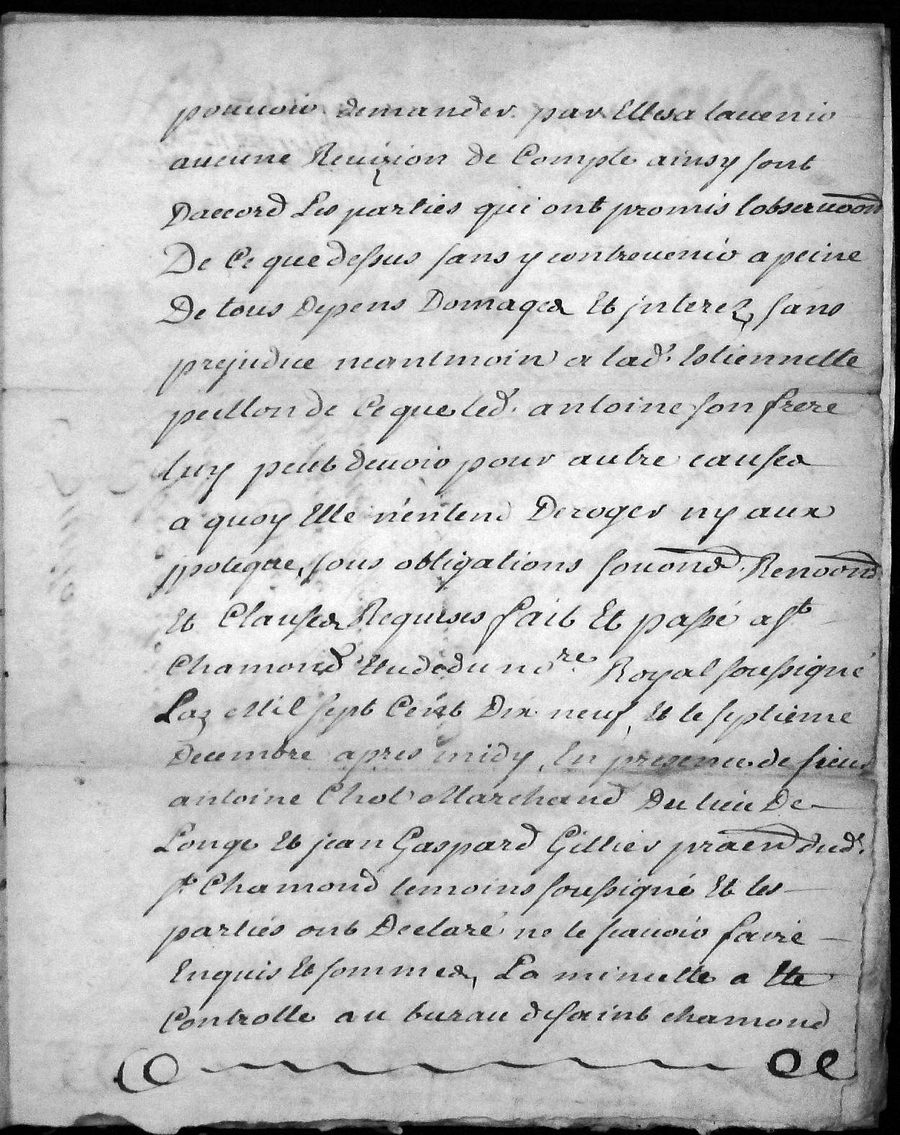 pouvoir demander par Elles a lavenir
aucune Reuizion de Compte ainsy sont
Daccord Les parties qui ont promis lobseruaon
De Ce que dessus sans y contreuenir a peine
De tous Depens Domages Et jnterez, sans
prejudice neantmoin a lad. Estiennette
peillon de Ce que led. antoine son frere
luy peut deuoir pour autre causes
a quoy Elle n'entend Deroger ny aux
ypoteque, sous obligations soumons. Renoons
Et Clauses Requises fait Et passé a st
Chamond Etude du nore Royal soussigné
Lan Mil sept Cent Dix neuf, Et le septieme
Decembre apres midy, En presence de sieur
antoine Chol Marchand Du lieu De
Longe Et jean Gaspard Gillier praen dud.
st Chamond temoins soussigné Et les
parties ont Declaré ne le scauoir faire
Enquis Et sommes, La minutte a Ete
Controlle au burau de saint chamond